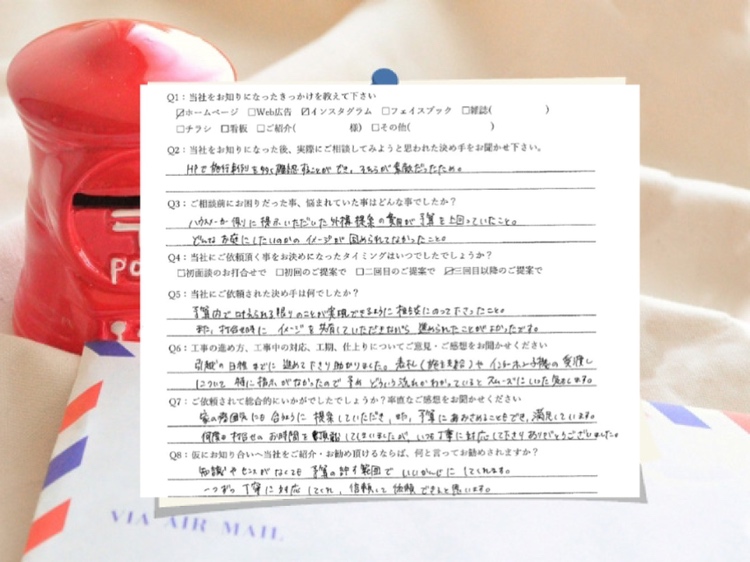 Q1：当社をお知りになったきっかけを教えて下さい
☑ホームページ □Web広告 ☑インスタグラム □フェイスブック □雑誌( )
□チラシ □看板 □ご紹介( 様) □その他( )
Q2：当社をお知りになった後、実際にご相談してみようと思われた決め手をお聞かせ下さい。
HPで施行事例を多く確認することができ、それらが素敵だったため。
Q3：ご相談前にお困りだった事、悩まれていた事はどんな事でしたか？
ハウスメーカー側に提示いただいた外構提案の費用が予算を上回っていたこと。
どんなお庭にしたいのかのイメージが固められてなかったこと。
Q4：当社にご依頼頂く事をお決めになったタイミングはいつでしたでしょうか？
□初面談のお打合せで □初回のご提案で □二回目のご提案で ☑三回目以降のご提案で
Q5：当社にご依頼された決め手は何でしたか？
予算内で叶えられる限りのことが実現できるように相談にのって下さったこと。
また、打合せ時にイメージを共有していただきながら進められたことがよかったです。
Q6：工事の進め方、工事中の対応、工期、仕上りについてご意見・ご感想をお聞かせください
引越の日程までに進めて下さり助かりました。表札(施主支給)やインターホン子機の受渡し
について特に指示がなかったので、どういう流れかわかっているとスムーズにいった気がします。
Q7：ご依頼されて総合的にいかがでしたでしょうか？率直なご感想をお聞かせください
家の雰囲気にも合うように提案していただき、また、予算におさめることもでき、満足しています。
何度も打合せのお時間を頂戴してしまいましたが、いつも丁寧に対応して下さりありがとうございました。
Q8：仮にお知り合いへ当社をご紹介・お勧め頂けるならば、何と言ってお勧めされますか？
知識やセンスがなくても予算の許す範囲でいいかんじにしてくれます。
一つずつ丁寧に対応してくれ、信頼して依頼できると思います。
PO
VIA AIR MAIL